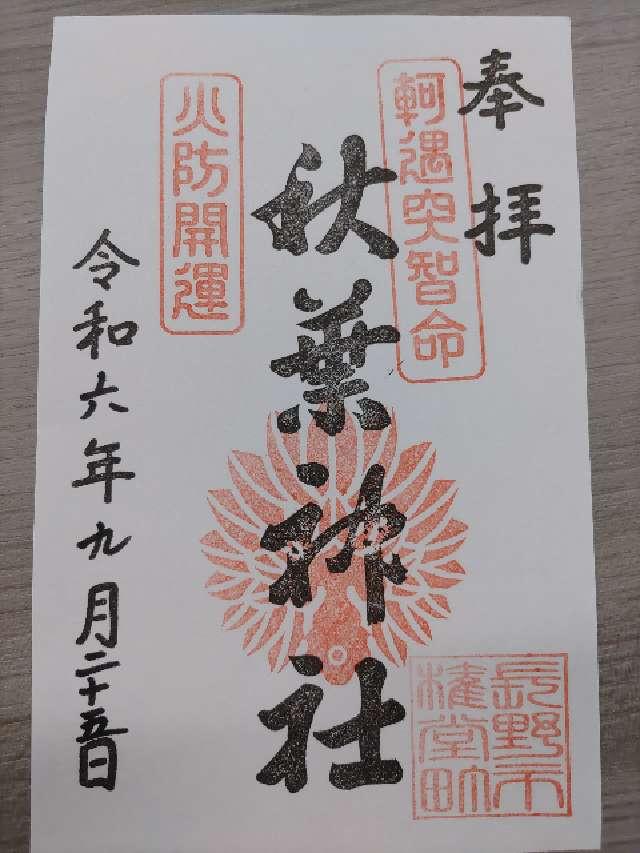 奉拝
軻遇突智命
秋葉神社
火防開運
令和六年九月二十五日
長野市
権堂町